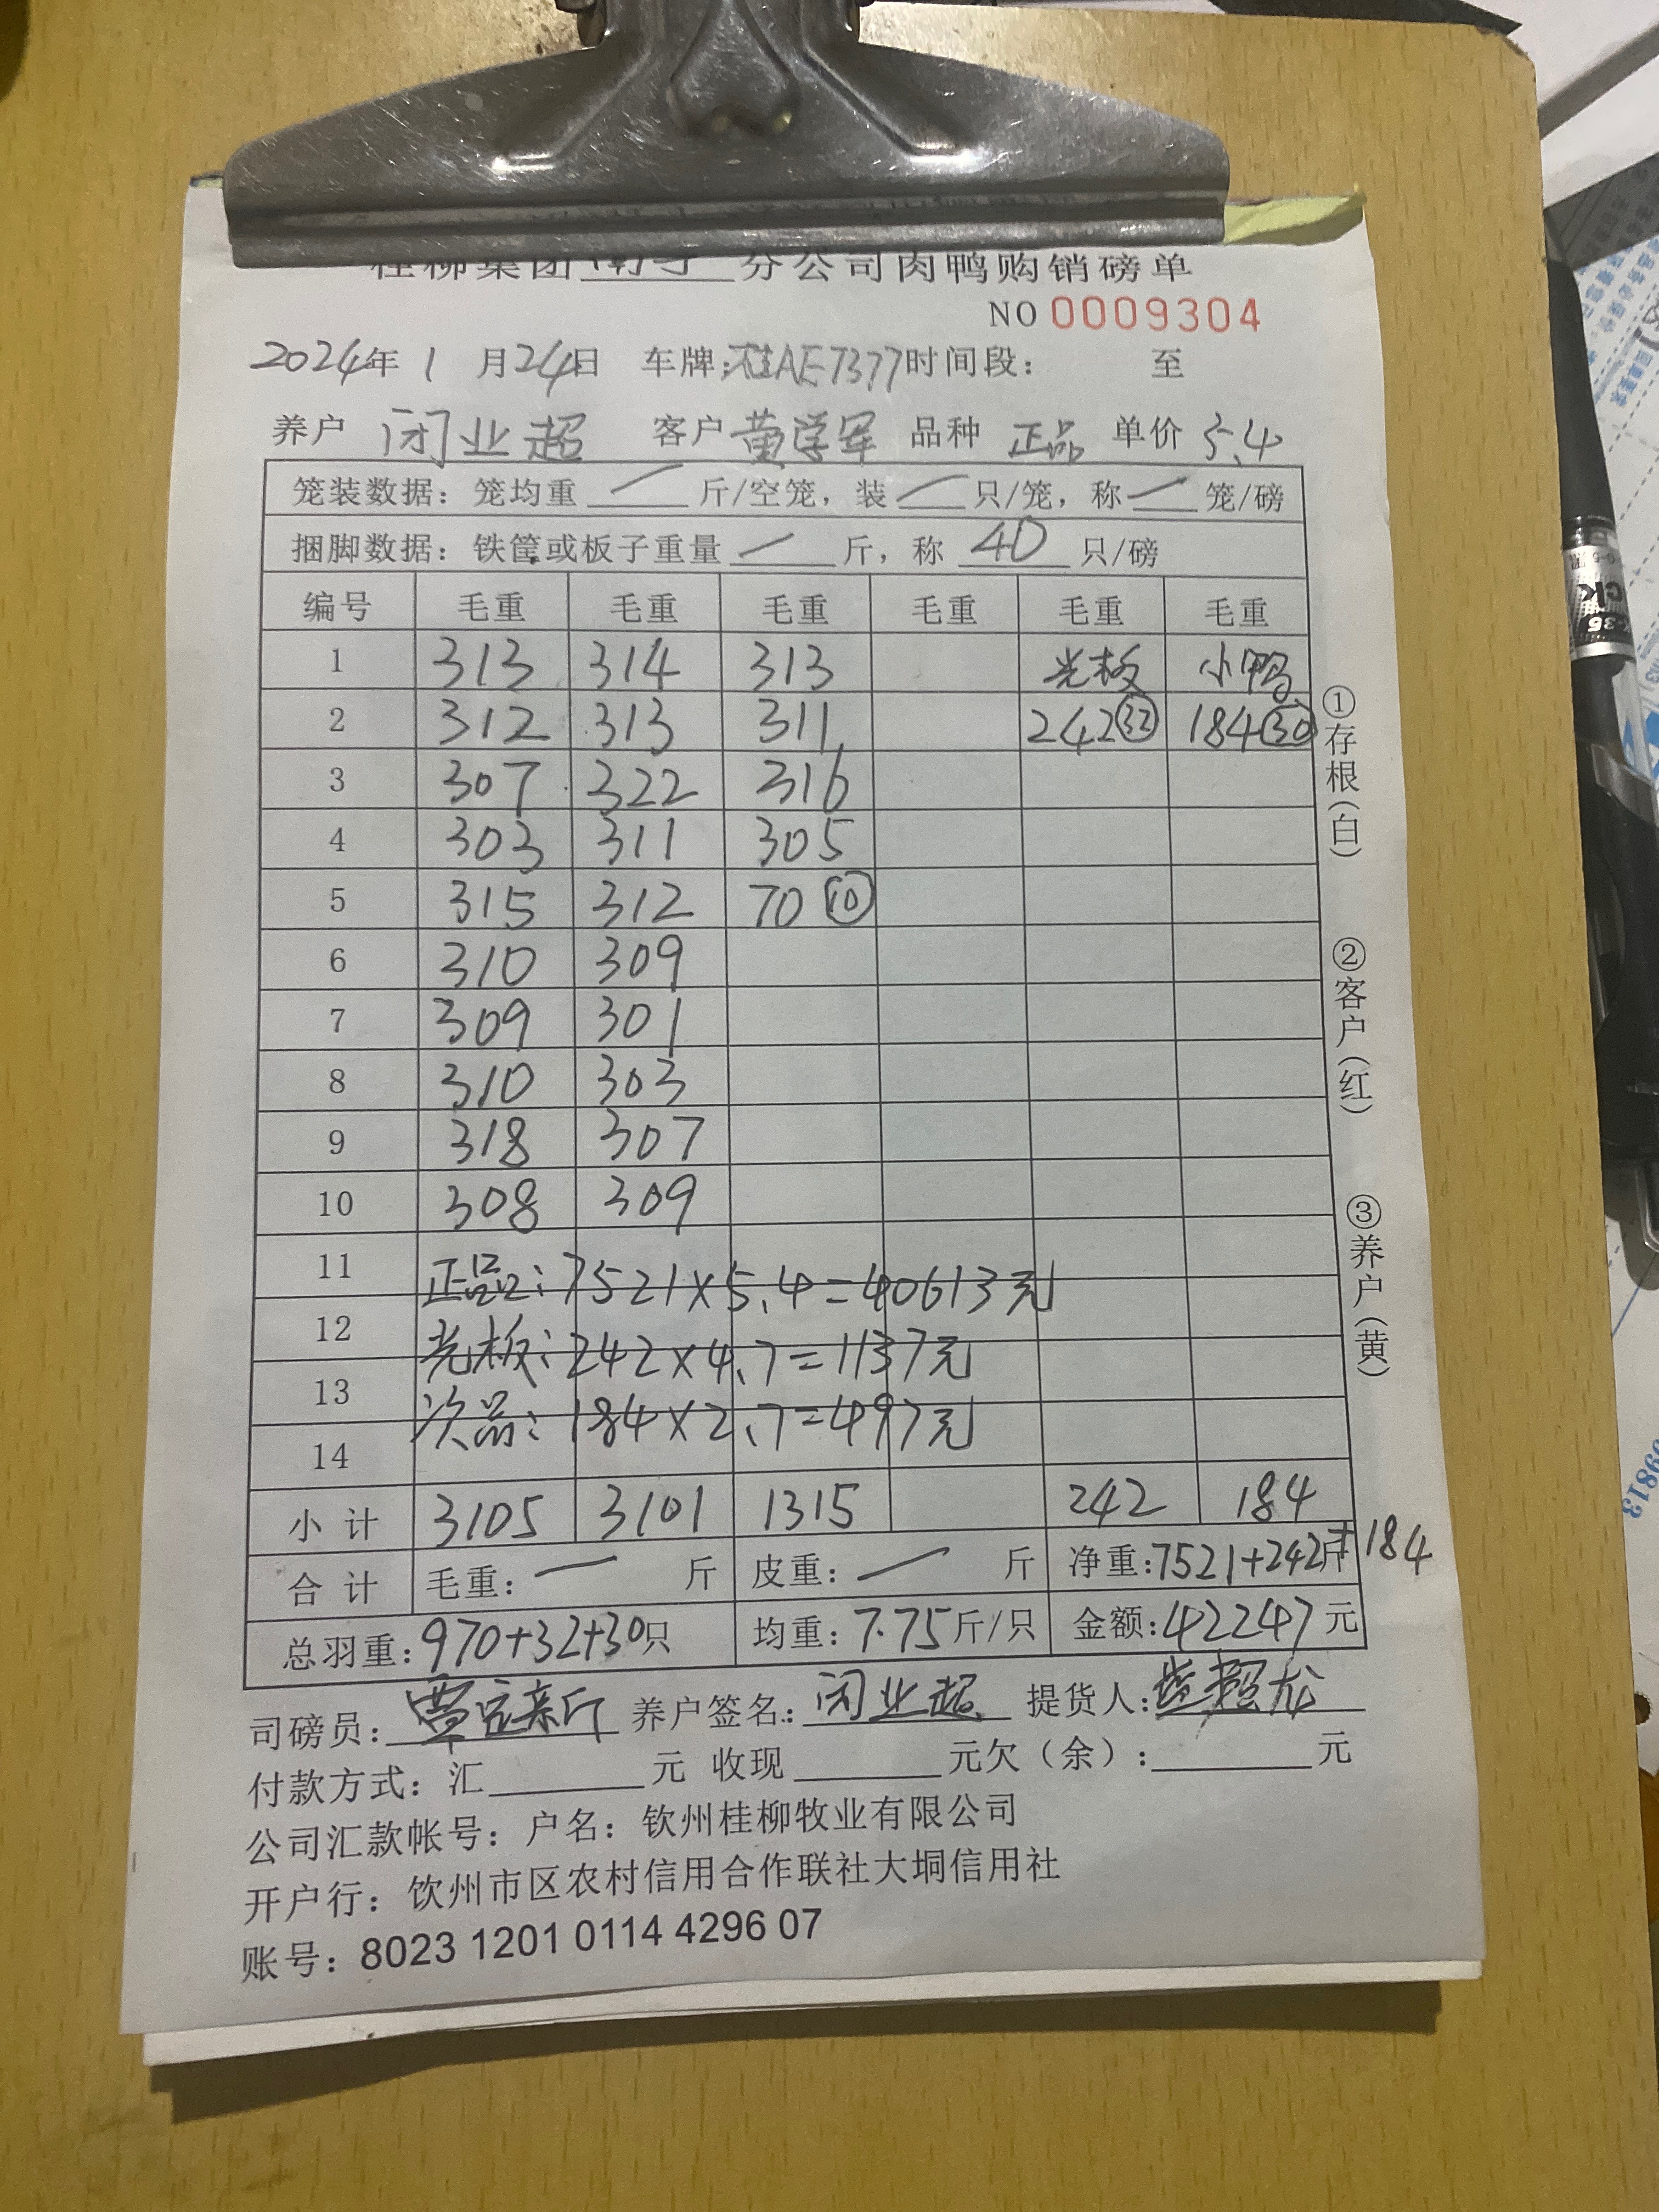 桂柳集团南宁分公司肉鸭购销磅单
NO 0009304
2024年 1 月24日 车牌:桂AE7377时间段: 至
养户 闭业超 客户 黄学军 品种 正品 单价 5.4
笼装数据: 笼均重 / 斤/空笼, 装 / 只/笼, 称 / 笼/磅
捆脚数据: 铁筐或板子重量 / 斤, 称 40 只/磅
编号 毛重 毛重 毛重 毛重 毛重 毛重
1 313 314 313 光板 小鸭
2 312 313 311 242㉜ 184㉚
3 307 322 316
4 303 311 305
5 315 312 70 ⑩
6 310 309
7 309 301
8 310 303
9 318 307
10 308 309
11 正品: 7521×5.4=40613元
12 光板: 242×4.7=1137元
13 次品: 184×2.7=497元
14
小计 3105 3101 1315 242 184
合计 毛重: / 斤 皮重: / 斤 净重:7521+242斤+184
总羽重: 970+32+30只 均重: 7.75斤/只 金额:42247元
司磅员: 养户签名: 闭业超 提货人:
付款方式: 汇 元 收现 元欠(余): 元
公司汇款帐号: 户名: 钦州桂柳牧业有限公司
开户行: 钦州市区农村信用合作联社大垌信用社
账号: 8023 1201 0114 4296 07
①存根(白)
②客户(红)
③养户(黄)